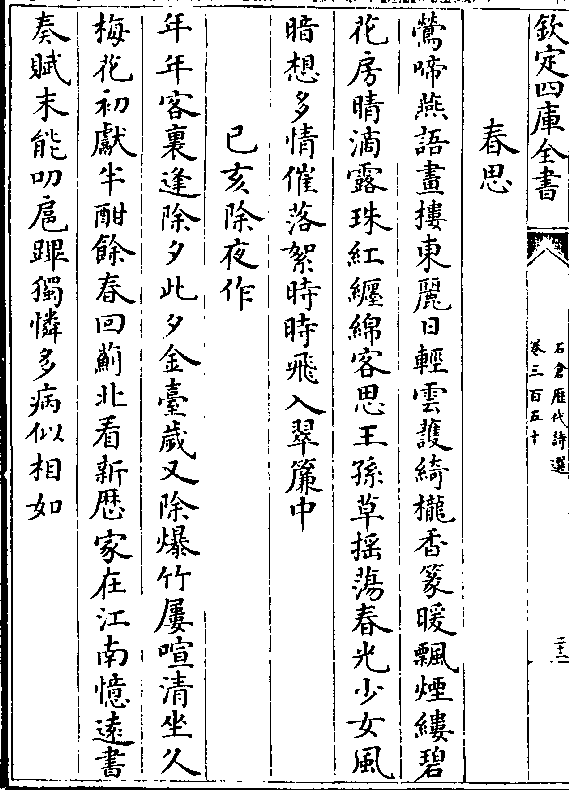 欽定四庫全書
石倉歴代詩選
卷三百五十
二十二
春思
鶯啼燕語畫樓東麗日輕雲護綺櫳香篆暖飄煙縷碧
花房晴滴露珠紅纏綿客思王孫草揺蕩春光少女風
暗想多情催落絮時時飛入翠簾中
己亥除夜作
年年客裏逢除夕此夕金臺嵗又除爆竹屢喧清坐久
梅花初獻半酣餘春回薊北看新歴家在江南憶逺書
奏賦未能叨扈蹕獨憐多病似相如